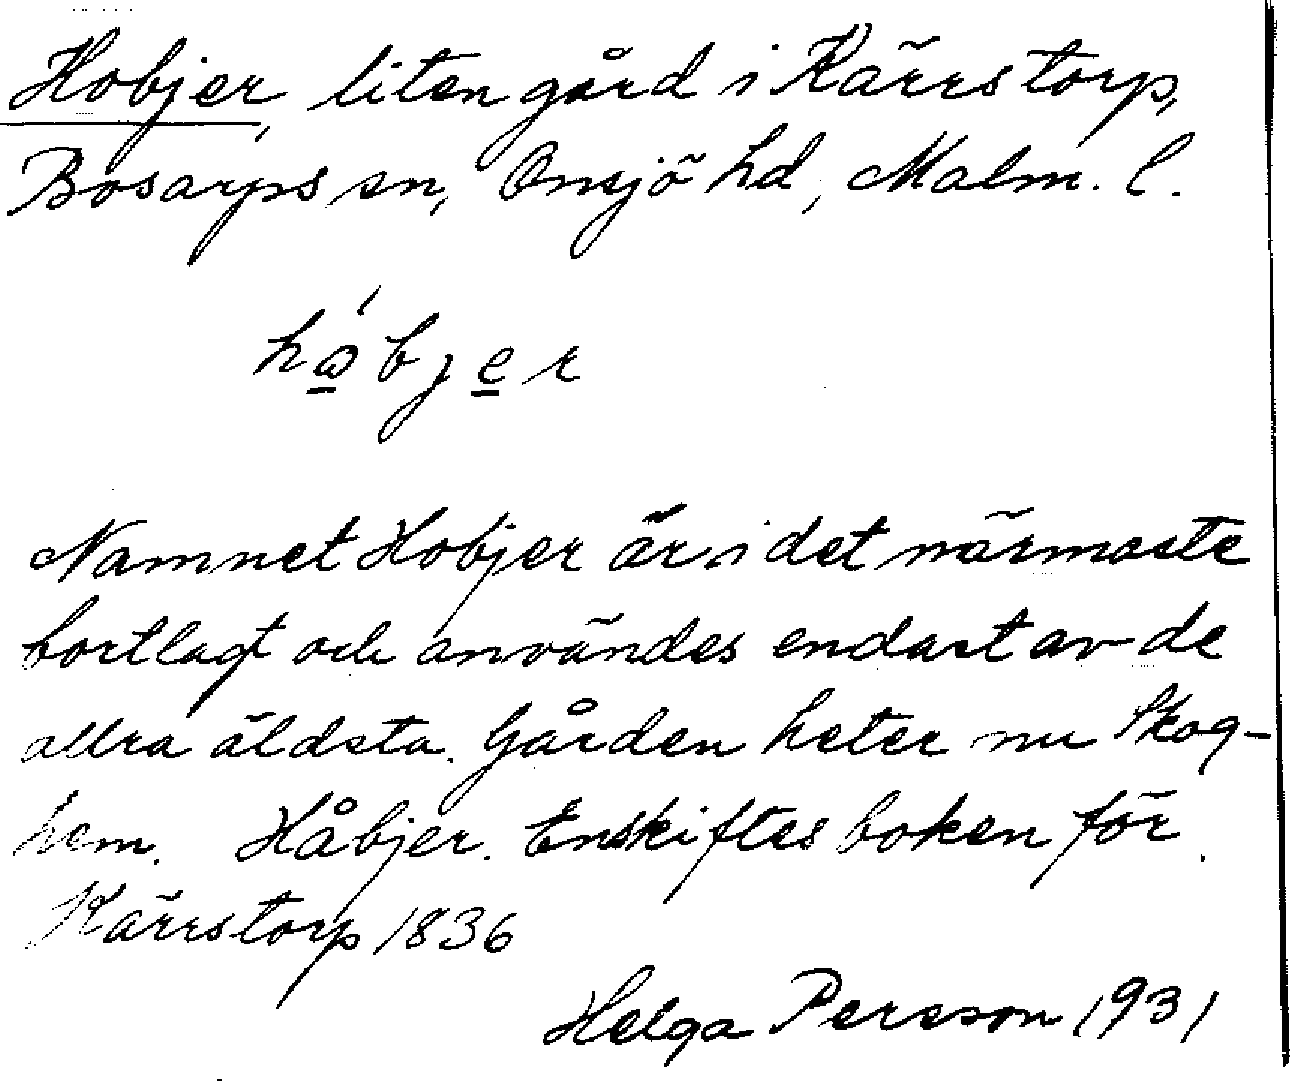 Hobjer, liten gård i Kärrstorp,
Bosarps sn, Onsjö hd, Malm. l.
håbjer
Namnet Hobjer är i det närmaste
bortlagt och användes endast av de
allra äldsta. Gården heter nu Skog-
hem. Håbjer. Enskiftesboken för
Kärrstorp 1836
Helga Persson 1931